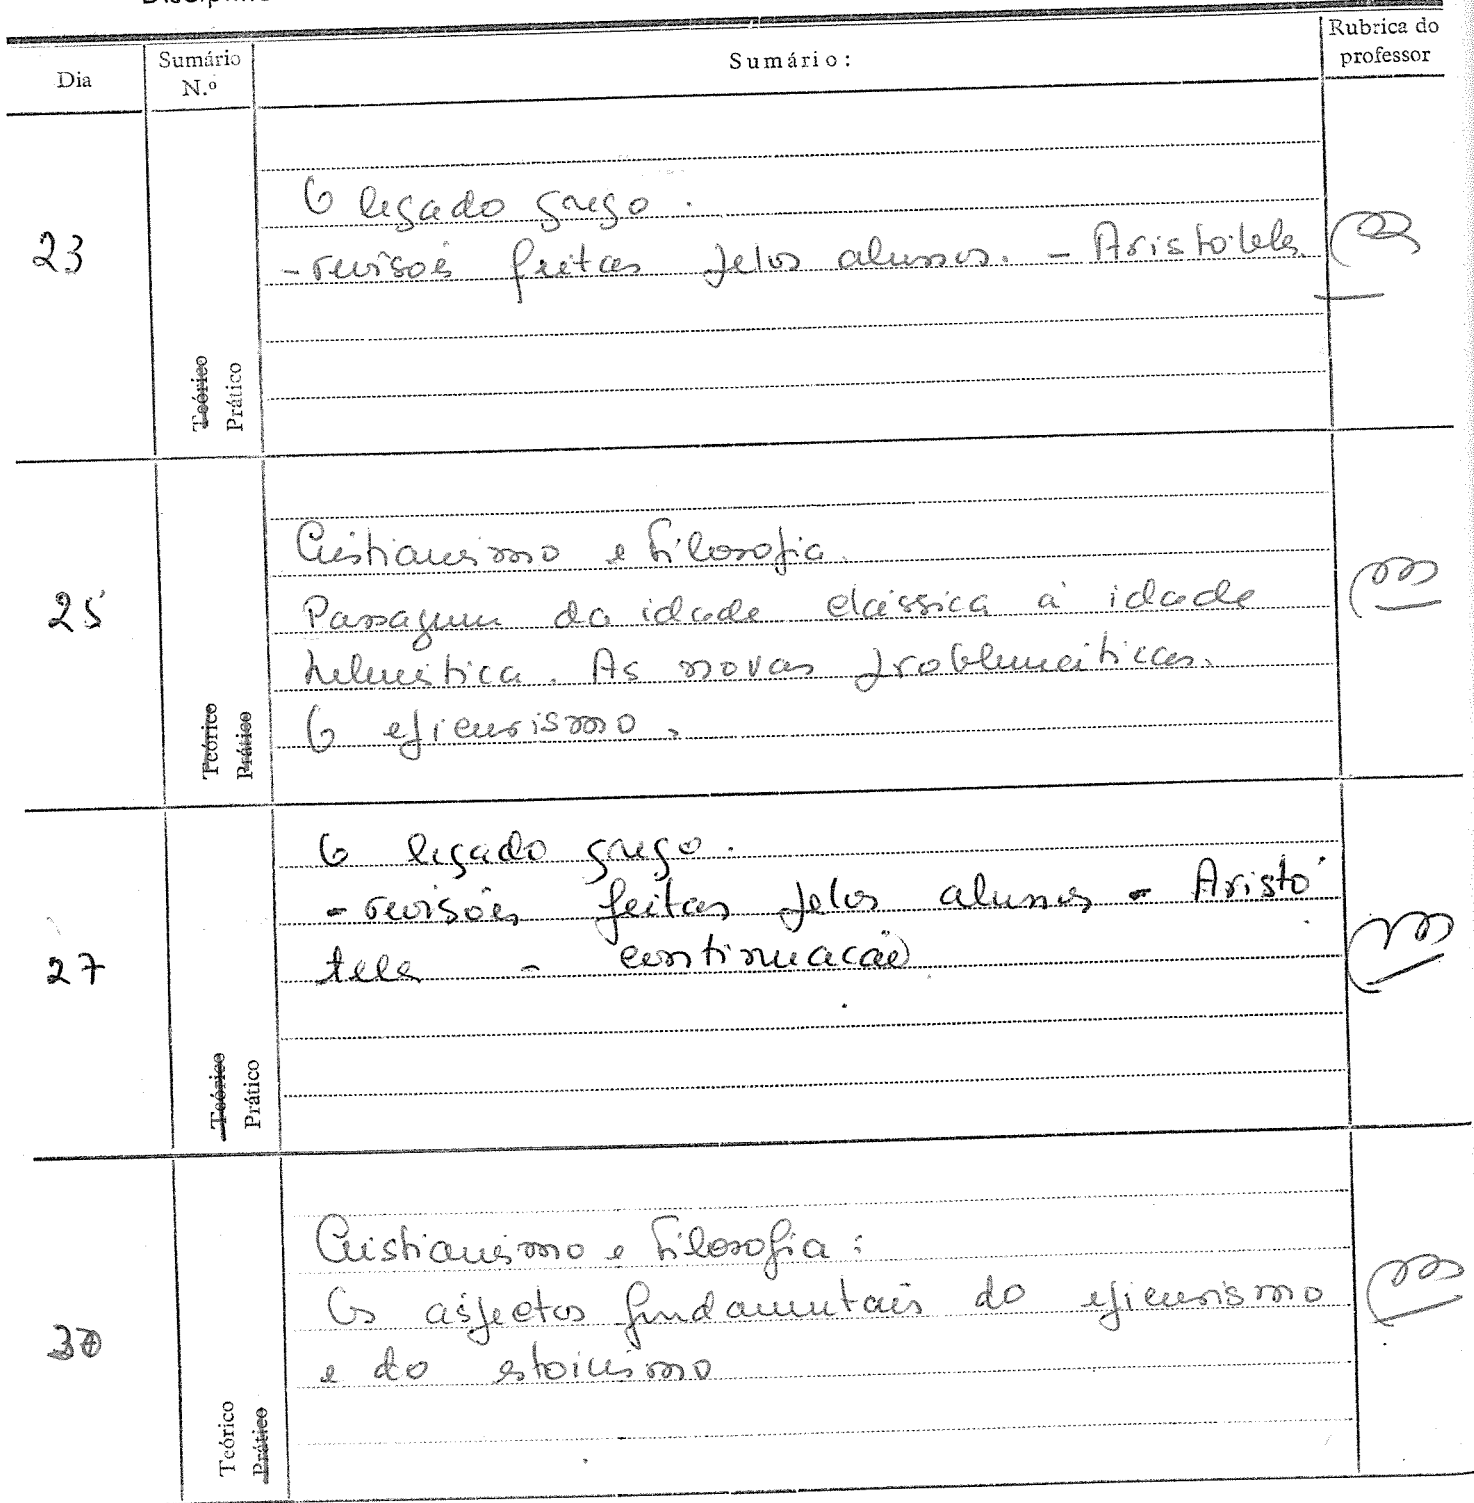 Dia
Sumário N.º
Sumário:
Rubrica do professor
23
O legado grego.
- revisões feitas pelos alunos. - Aristóteles
Teórico
Prático
25
Cristianismo e Filosofia.
Passagem da idade clássica à idade
helenística. As novas problemáticas.
O epicurismo.
Teórico
Prático
27
O legado grego.
- revisões feitas pelos alunos - Aristó
teles - continuação
Teórico
Prático
30
Cristianismo e Filosofia:
Os aspectos fundamentais do epicurismo
e do estoicismo
Teórico
Prático